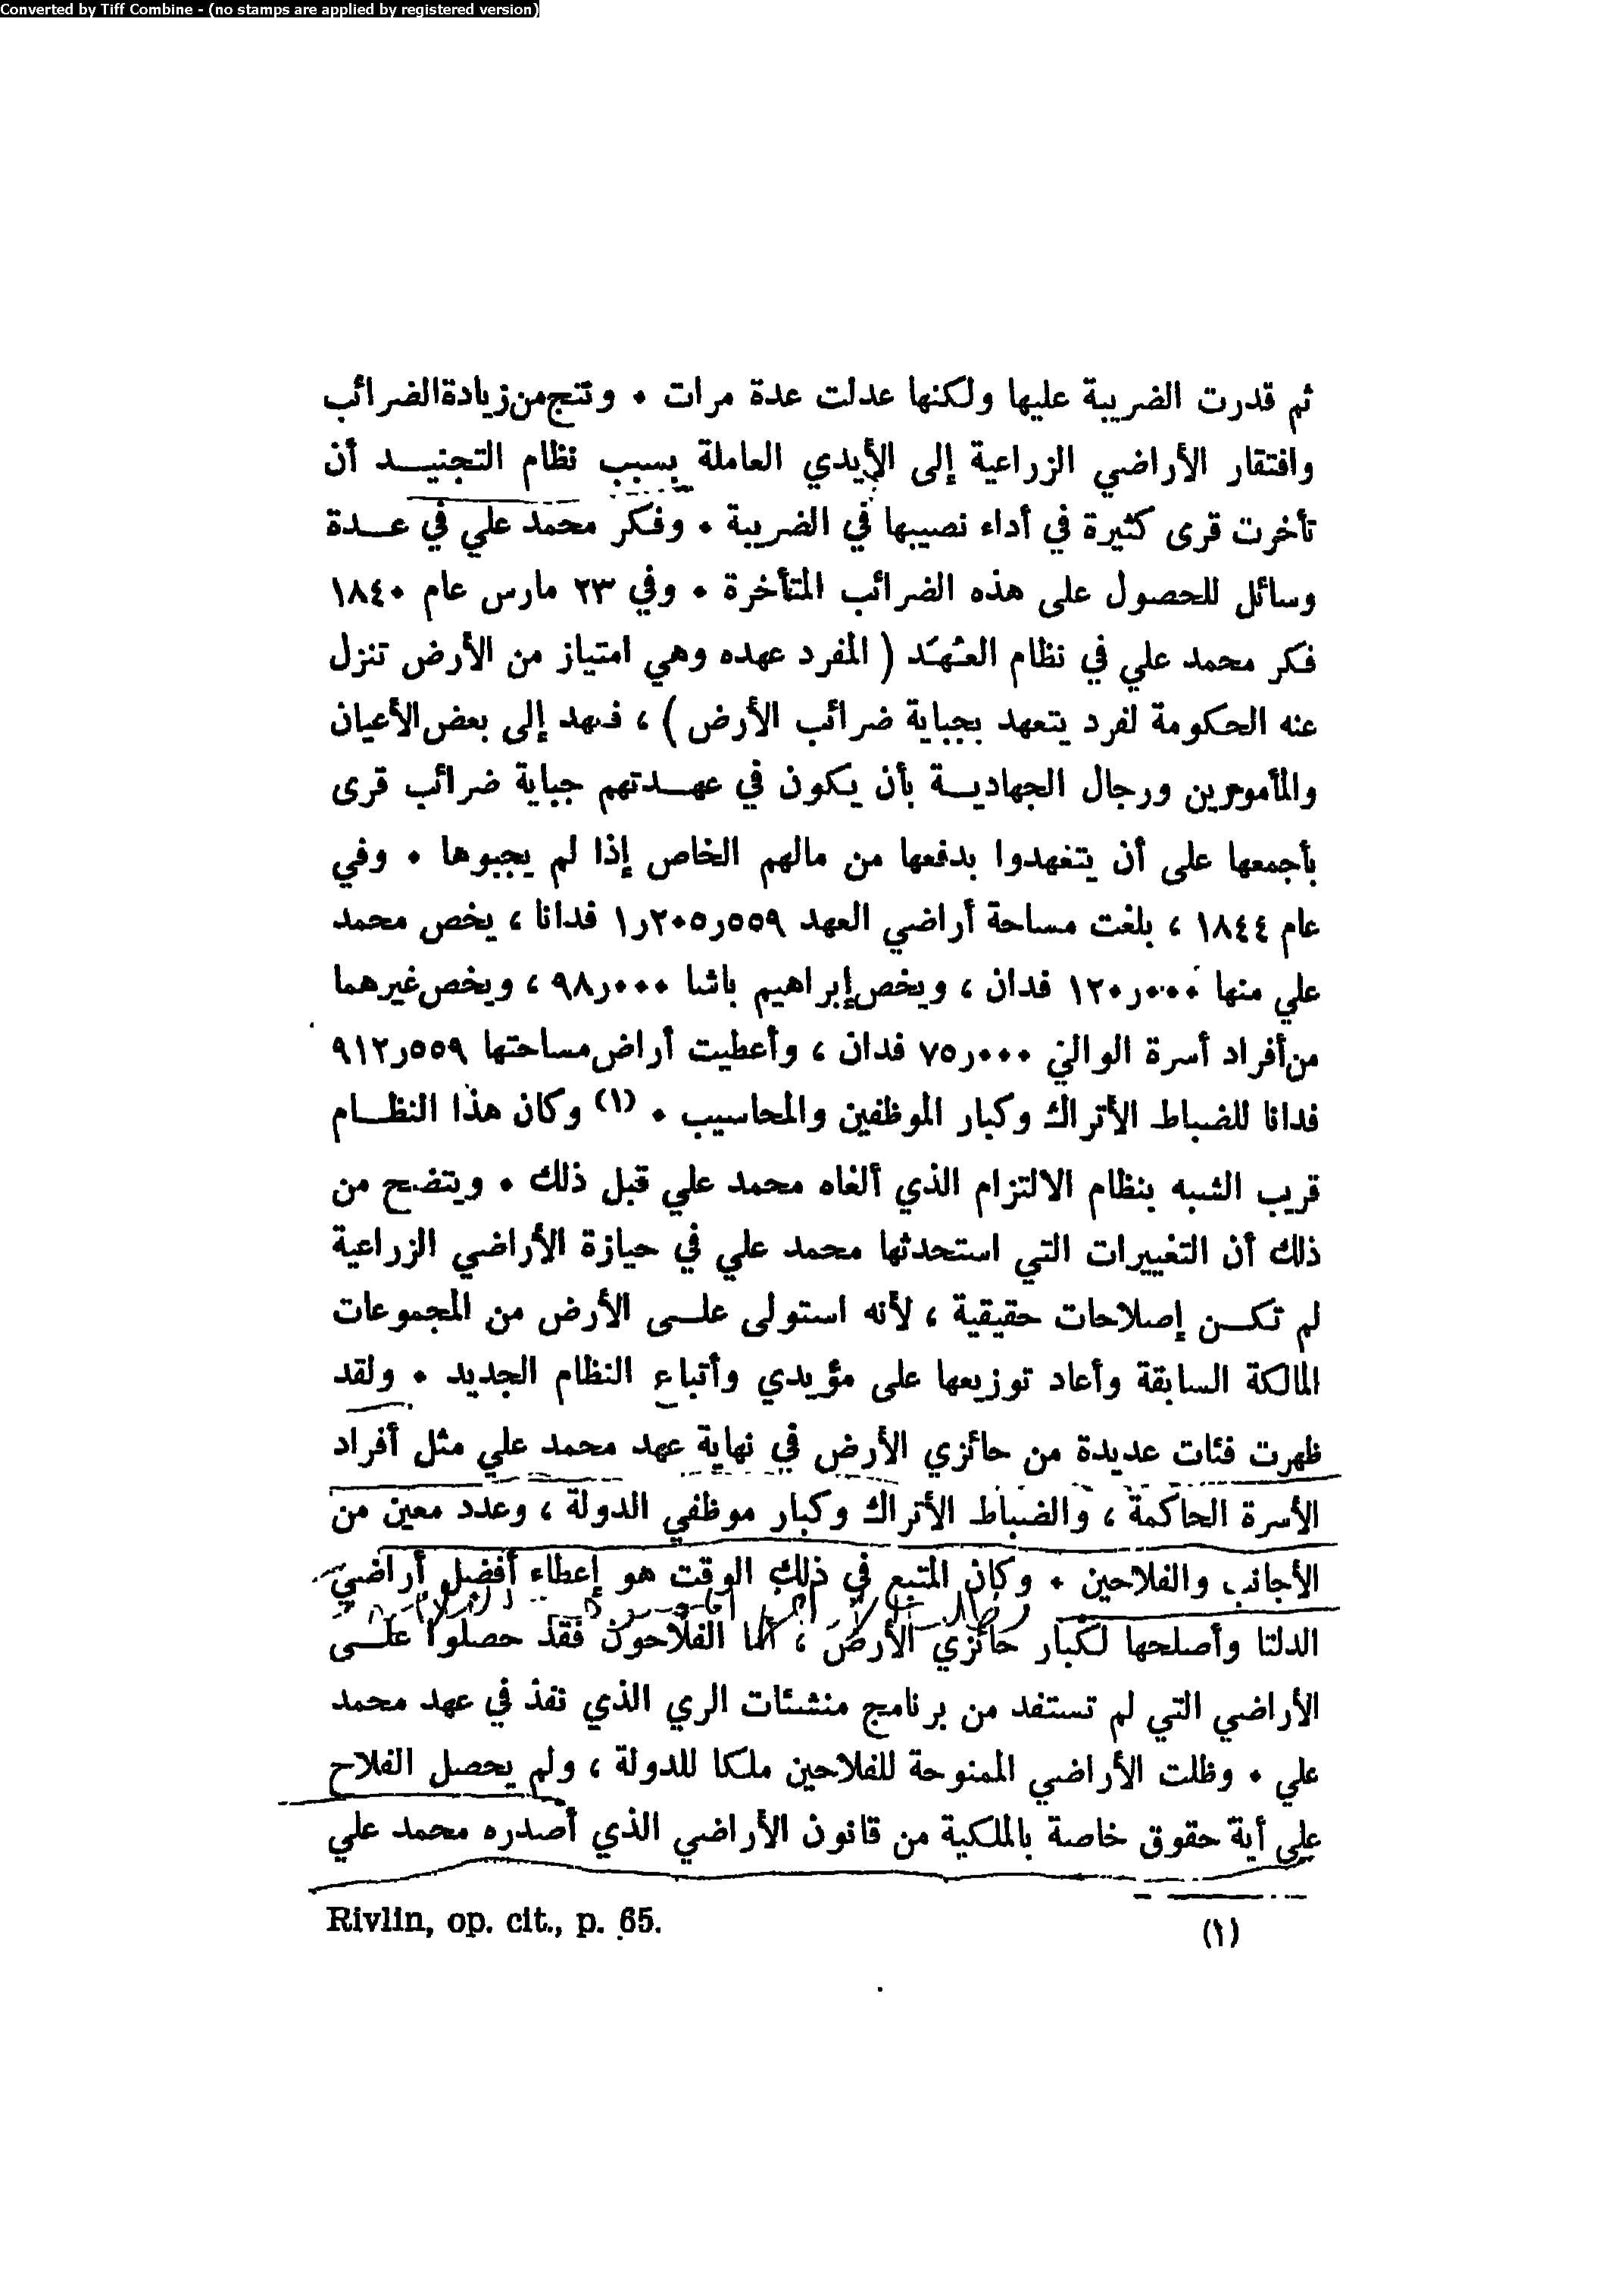 Converted by Tiff Combine - (no stamps are applied by registered version)
ثم قدرت الضريبة عليها ولكنها عدلت عدة مرات ٠ ونتج من زيادة الضرائب
وافتقار الأراضي الزراعية إلى الأيدي العاملة بسبب نظام التجنيــد أن
تأخرت قرى كثيرة في أداء نصيبها في الضريبة ٠ وفكر محمد علي في عــدة
وسائل للحصول على هذه الضرائب المتأخرة ٠ وفي ٢٣ مارس عام ١٨٤٠
فكر محمد علي في نظام العُهَد ( المفرد عهده وهي امتياز من الأرض تنزل
عنه الحكومة لفرد يتعهد بجباية ضرائب الأرض ) ، فعهد إلى بعض الأعيان
والمأمورين ورجال الجهاديــة بأن يكون في عهــدتهم جباية ضرائب قرى
بأجمعها على أن يتعهدوا بدفعها من مالهم الخاص إذا لم يجبوها ٠ وفي
عام ١٨٤٤ ، بلغت مساحة أراضي العهد ١ر٢٠٥ر٥٥٩ فدانا ، يخص محمد
علي منها ١٢٠ر٠٠٠ فدان ، ويخص إبراهيم باشا ٩٨ر٠٠٠ ، ويخص غيرهما
من أفراد أسرة الوالي ٧٥ر٠٠٠ فدان ، وأعطيت أراض مساحتها ٩١٢ر٥٥٩
فدانا للضباط الأتراك وكبار الموظفين والمحاسيب ٠ (١) وكان هذا النظــام
قريب الشبه بنظام الالتزام الذي ألغاه محمد علي قبل ذلك ٠ ويتضح من
ذلك أن التغييرات التي استحدثها محمد علي في حيازة الأراضي الزراعية
لم تكــن إصلاحات حقيقية ، لأنه استولى علــى الأرض من المجموعات
المالكة السابقة وأعاد توزيعها على مؤيدي وأتباع النظام الجديد ٠ ولقد
ظهرت فئات عديدة من حائزي الأرض في نهاية عهد محمد علي مثل أفراد
الأسرة الحاكمة ، والضباط الأتراك وكبار موظفي الدولة ، وعدد معين من
الأجانب والفلاحين ٠ وكان المتبع في ذلك الوقت هو إعطاء أفضل أراضي
الدلتا وأصلحها لكبار حائزي الأرض ، أما الفلاحون فقد حصلوا علــى
الأراضي التي لم تستفد من برنامج منشئات الري الذي نفذ في عهد محمد
علي ٠ وظلت الأراضي الممنوحة للفلاحين ملكا للدولة ، ولم يحصل الفلاح
على أية حقوق خاصة بالملكية من قانون الأراضي الذي أصدره محمد علي
(١) Rivlin, op. cit., p. 65.